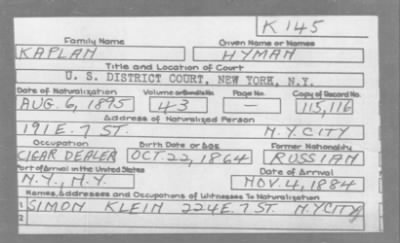 K 145
Family Name Given Name or Names
KAPLAN HYMAN
Title and Location of Court
U. S. DISTRICT COURT, NEW YORK, N.Y.
Date of Naturalization Volume or Bundle No. Page No. Copy of Record No.
AUG. 6, 1895 43 — 115,116
Address of Naturalized Person
191 E. 7 ST. N.Y. CITY
Occupation Birth Date or Age Former Nationality
CIGAR DEALER OCT. 22, 1864 RUSSIAN
Port of Arrival in the United States Date of Arrival
N.Y., N.Y. NOV. 4, 1884
Names, Addresses and Occupations of Witnesses To Naturalization
1 SIMON KLEIN 224 E. 7 ST. N.Y CITY
2